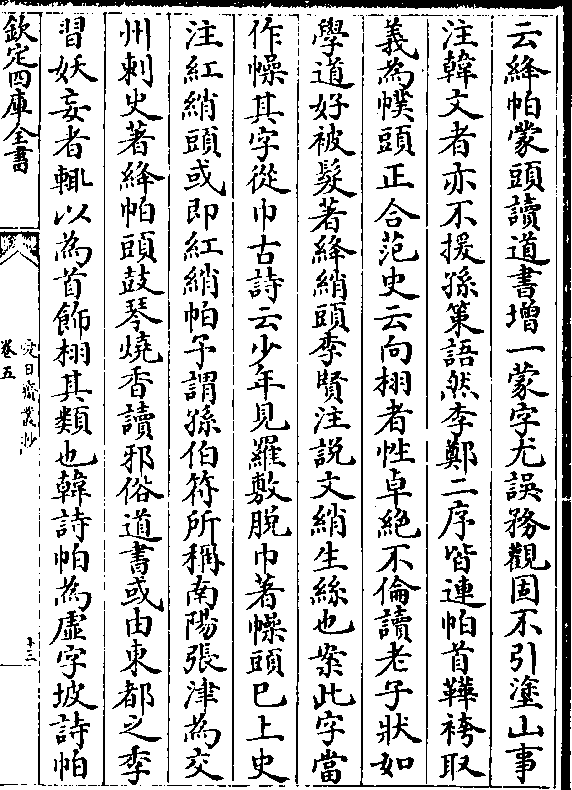 云絳帕蒙頭讀道書增一蒙字尤誤務觀固不引塗山事
注韓文者亦不援孫策語然李鄭二序皆連帕首鞾袴取
義為幞頭正合范史云向栩者性卓絶不倫讀老子狀如
學道好被髮著絳綃頭李賢注説文綃生絲也案此字當
作幧其字從巾古詩云少年見羅敷脱巾著幧頭已上史
注紅綃頭或即紅綃帕予謂孫伯符所稱南陽張津為交
州刺史著絳帕頭鼓琴燒香讀邪俗道書或由東都之季
習妖妄者輒以為首飾栩其類也韓詩帕為虚字坡詩帕
欽定四庫全書
愛日齋叢抄
卷五
十二